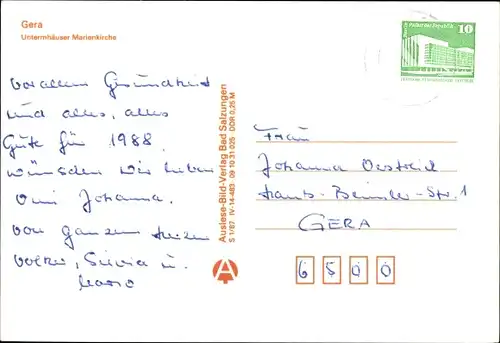 Gera
Untermhäuser Marienkirche
vor allem Gesundheit
und alles, alles
Gute für 1988
wünschen wir lieben
Omi Johanna.
von ganzem Herzen
Volker, Silvia u.
Auslese-Bild-Verlag Bad Salzungen
S 1/87 IV-14-483 09 10 31 025 DDR 0,25 M
10
Frau
Johanna Oestreich
Hans-Beimler-Str. 1
GERA
6500